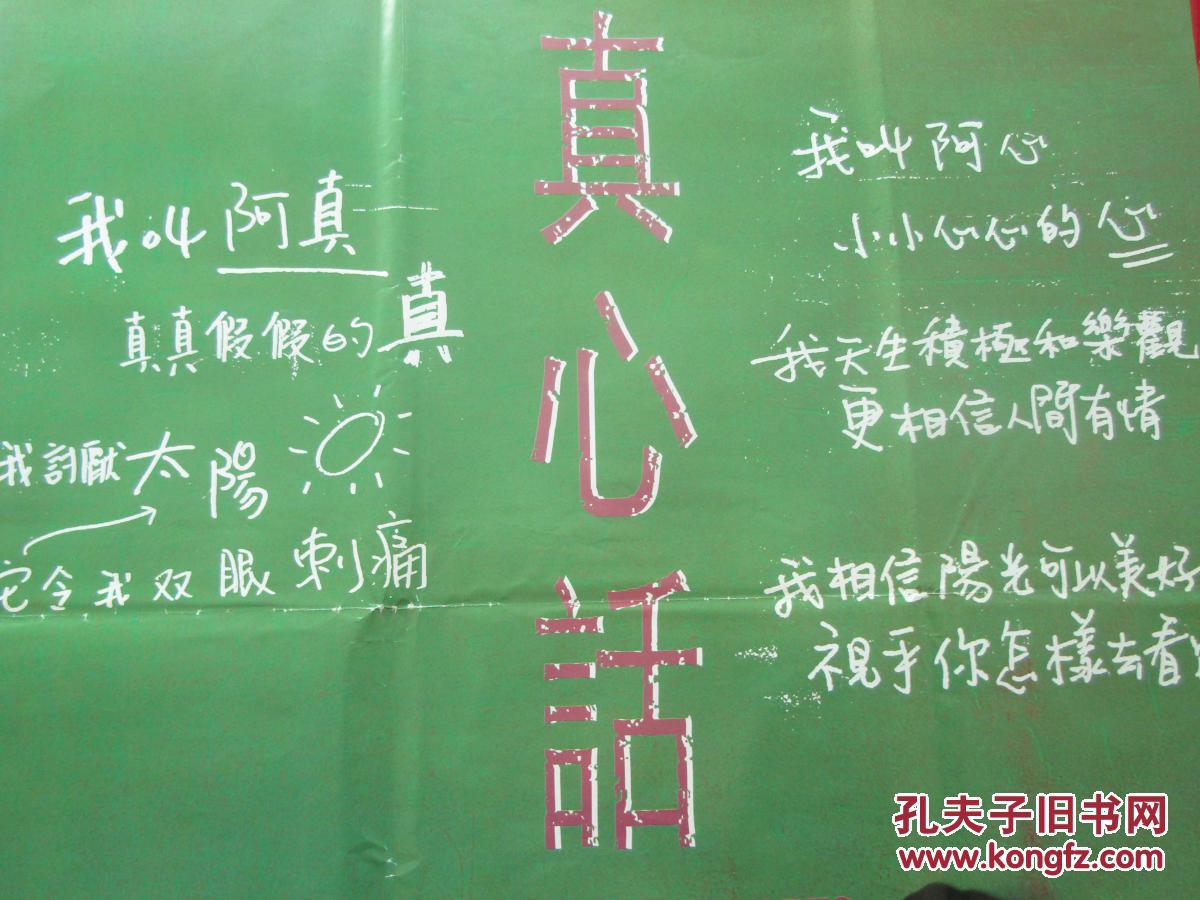 真心話
我叫阿真
真真假假的真
我討厭太陽
它令我双眼刺痛
我叫阿心
小小心心的心
我天生積極和樂觀
更相信人間有情
我相信陽光可以美好
視乎你怎樣去看
孔夫子旧书网
www.kongfz.com